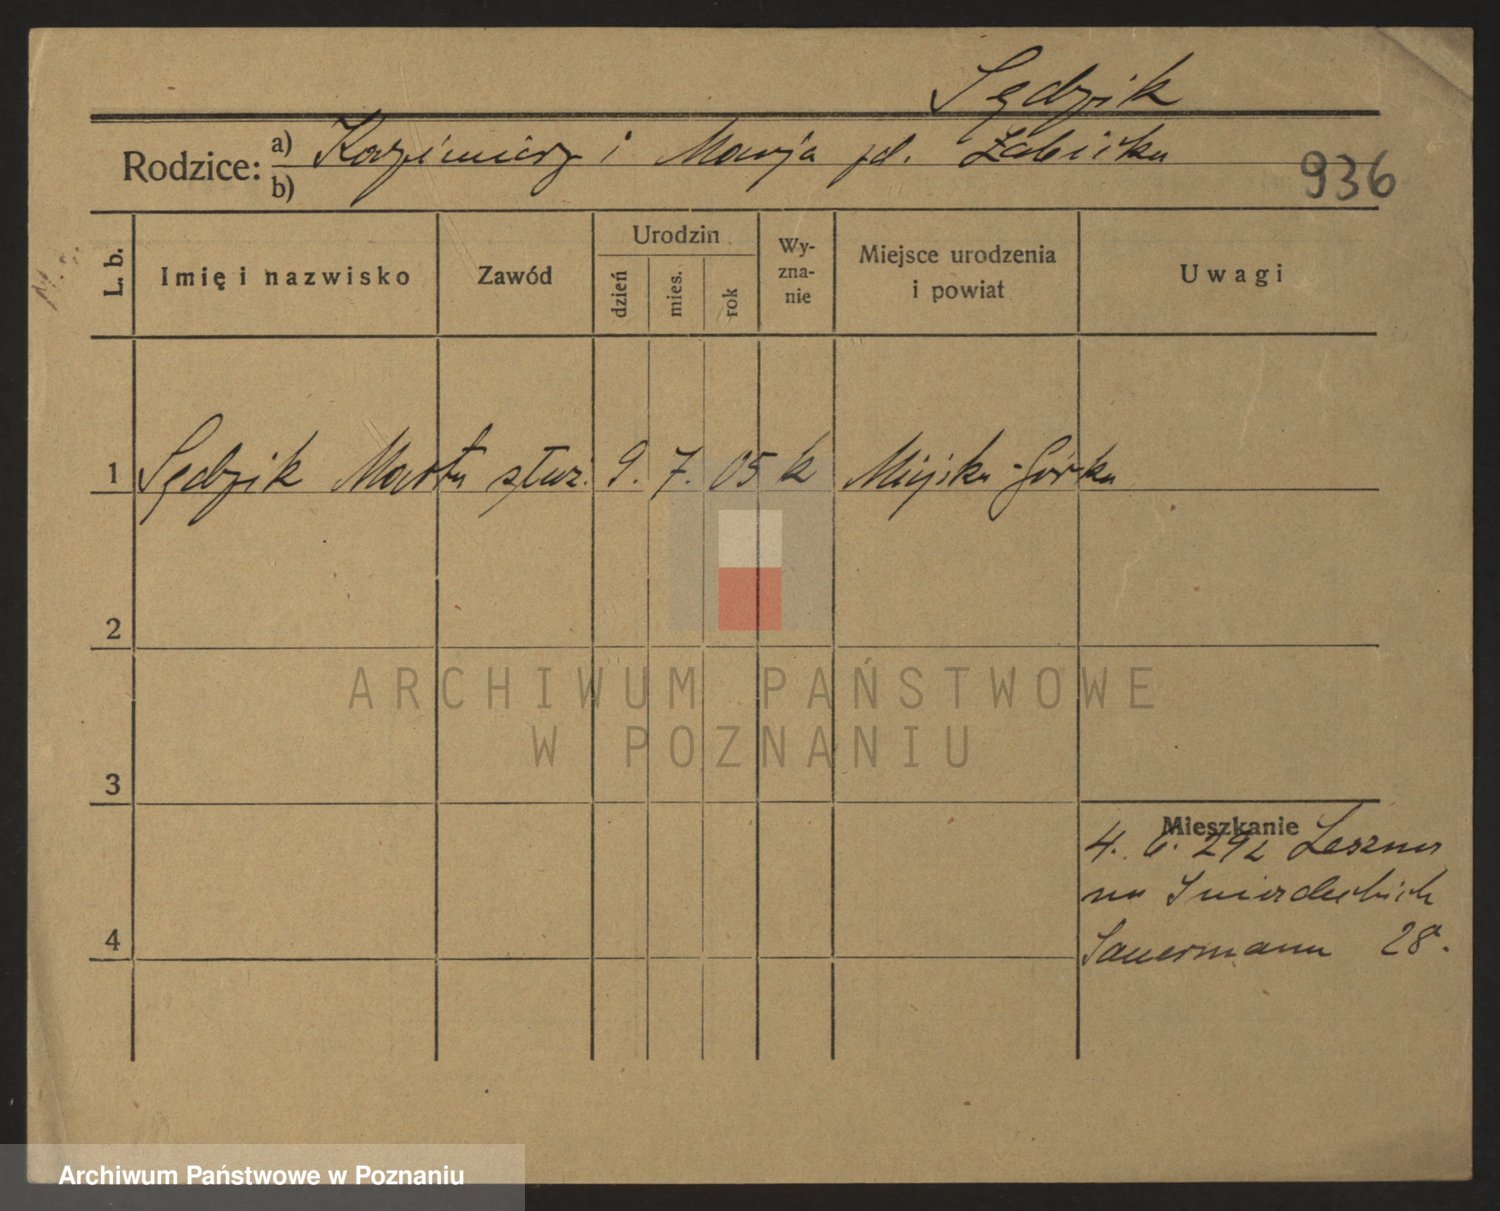 Sędzik
Rodzice: a) Kazimierz i Marja zd. Żabicka
b)
936
L. b. Imię i nazwisko Zawód Urodzin dzień mies. rok Wy-zna-nie Miejsce urodzenia i powiat Uwagi
1 Sędzik Marta służ. 9. 7. 05 k Miejska-Górka
2
3
4
Mieszkanie
4. 6. 29 z Leszna
na Śniardeckich
Sauermann 28.
ARCHIWUM PAŃSTWOWE
W POZNANIU
Archiwum Państwowe w Poznaniu